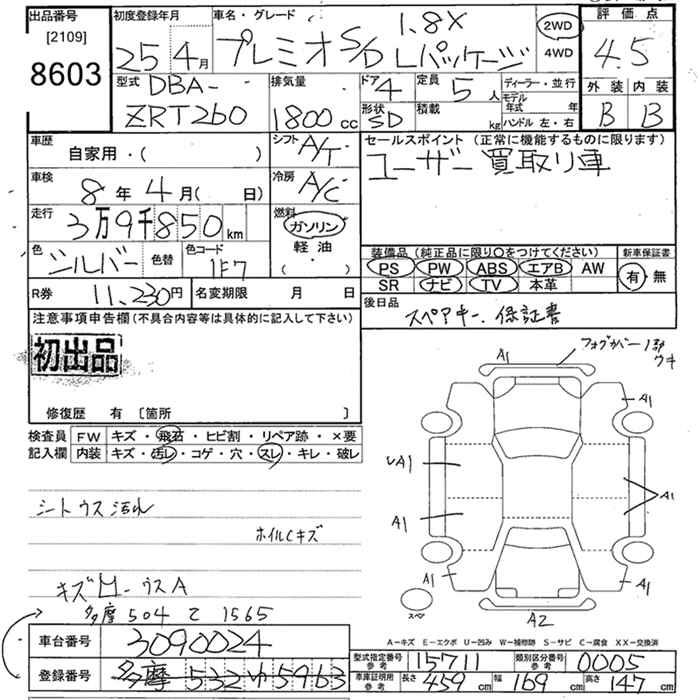 出品番号
[2109]
8603
初度登録年月
25年4月
車名・グレード
1.8X
プレミオ S/D Lパッケージ
2WD
4WD
評価点
4.5
外装 内装
B B
型式 DBA-
ZRT260
排気量
1800cc
ドア 4
形状 SD
定員 5人
積載 kg
ディーラー・並行
モデル年式 年
ハンドル 左・右
車歴
自家用・( )
シフト A/T
車検
8年4月( 日)
冷房 A/C
走行
3万9千850km
燃料
ガソリン
軽油
( ・ )
色 シルバー 色替
色コード 1F7
R券 11,230円
名変期限 月 日
セールスポイント(正常に機能するものに限ります)
ユーザー買取り車
装備品(純正品に限り○をつけてください)
PS PW ABS エアB AW
SR ナビ TV 本革
新車保証書
有・無
後日品
スペアキー、保証書
注意事項申告欄(不具合内容等は具体的に記入して下さい)
初出品
修復歴 有〔箇所 〕
検査員記入欄
FW キズ・飛石・ヒビ割・リペア跡・×要
内装 キズ・汚レ・コゲ・穴・スレ・キレ・破レ
シートウス汚れ
ホイルCキズ
ウスA
多摩 504 て 1565
車台番号 3090024
登録番号 多摩 532 ゆ 5963
A1
フォグカバー1部
ウキ
A1
A1
A1
A1
A1
A1
A1
スペア
A2
A−キズ E−エクボ U−凹み W−補修跡 S−サビ C−腐食 XX−交換済
型式指定番号参考 15711
類別区分番号参考 0005
車庫証明用参考 長さ 459cm 幅 169cm 高さ 147cm